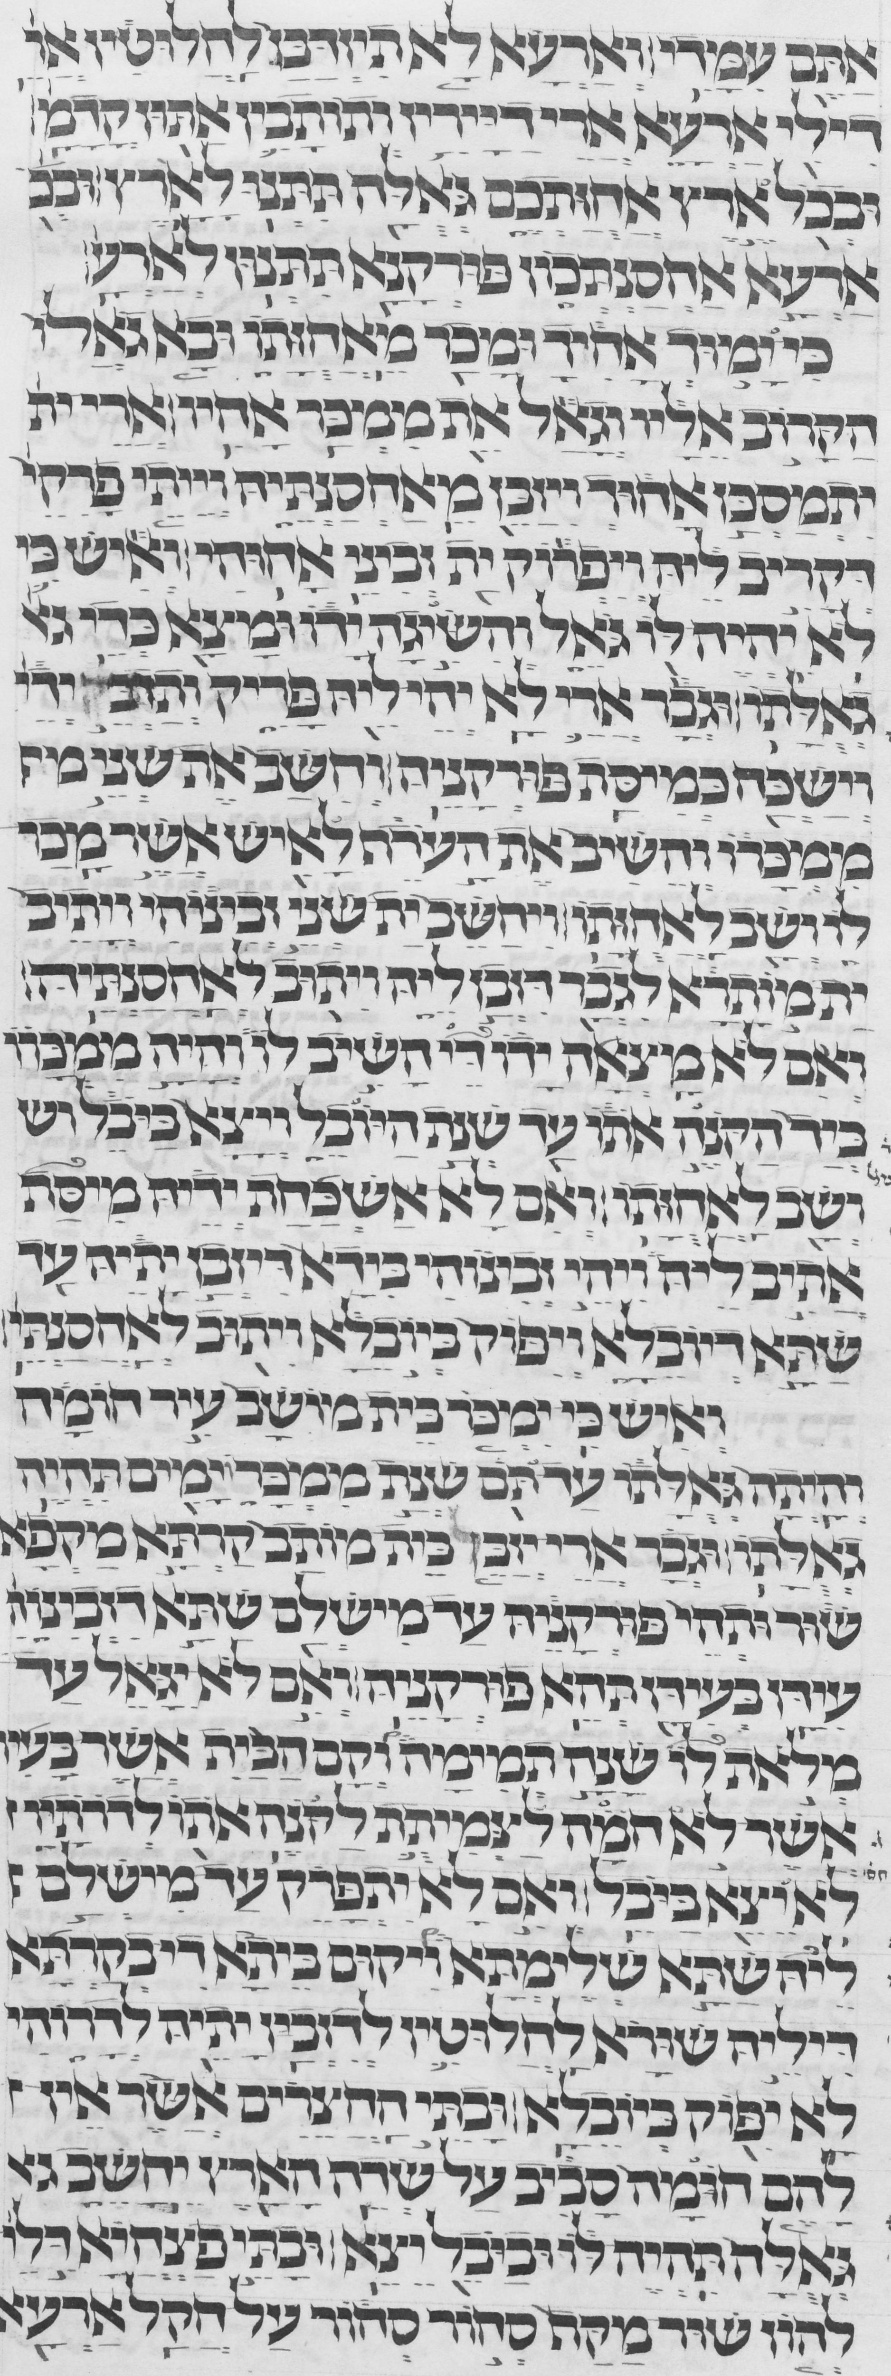 אתם עמדי וארעא לא תיזדבן לחלוטין אר
דילי ארעא ארי דיירין ותותבין אתון קדמי
ובכל ארץ אחזתכם גאלה תתנו לארץ ובכ
ארעא אחסנתכון פורקנא תתנון לארע
כי ימוך אחיך ומכר מאחזתו ובא גאלו
הקרוב אליו וגאל את ממכר אחיו ארי ית
יתמסכן אחוך ויזבן מאחסנתיה וייתי פרקי
דקריב ליה ויפרוק ית זביני אחוהי ואיש כי
לא יהיה לו גאל והשיגה ידו ומצא כדי גא
גאלתו וגבר ארי לא יהי ליה פריק ותדבק ידו
וישכח כמיסת פורקניה וחשב את שני ממ
ממכרו והשיב את העדף לאיש אשר מכר
לו ושב לאחזתו ויחשב ית שני זבינוהי ויתיב
ית מותרא לגבר דזבן ליה ויתוב לאחסנתיה
ואם לא מצאה ידו די השיב לו והיה ממכרו
ביד הקנה אתו עד שנת היובל ויצא ביבל וש
ושב לאחזתו ואם לא אשכחת ידיה מיסת
אתיב ליה ויהי זבינוהי בידא דיזבן יתיה עד
שתא דיובלא ויפוק ביובלא ויתוב לאחסנתי
ואיש כי ימכר בית מושב עיר חומה
והיתה גאלתו עד תם שנת ממכרו ימים תהיה
גאלתו וגבר ארי יזבן בית מותב קרתא מקפא
שור ותהי פורקניה עד מישלם שתא דזבינוה
עידן בעידן תהא פורקניה ואם לא יגאל עד
מלאת לו שנה תמימה וקם הבית אשר בעיר
אשר לא חמה לצמיתת לקנה אתו לדרתיו
לא יצא ביבל ואם לא יתפרק עד מישלם
ליה שתא שלימתא ויקום ביתא די בקרתא
דיליה שורא לחלוטין לדזבין יתיה לדרוהי
לא יפוק ביובלא ובתי החצרים אשר אין
להם חומה סביב על שדה הארץ יחשב גא
גאלה תהיה לו וביבל יצא ובתי פצחיא דלי
להון שור מקף סחור סחור על חקל ארעא